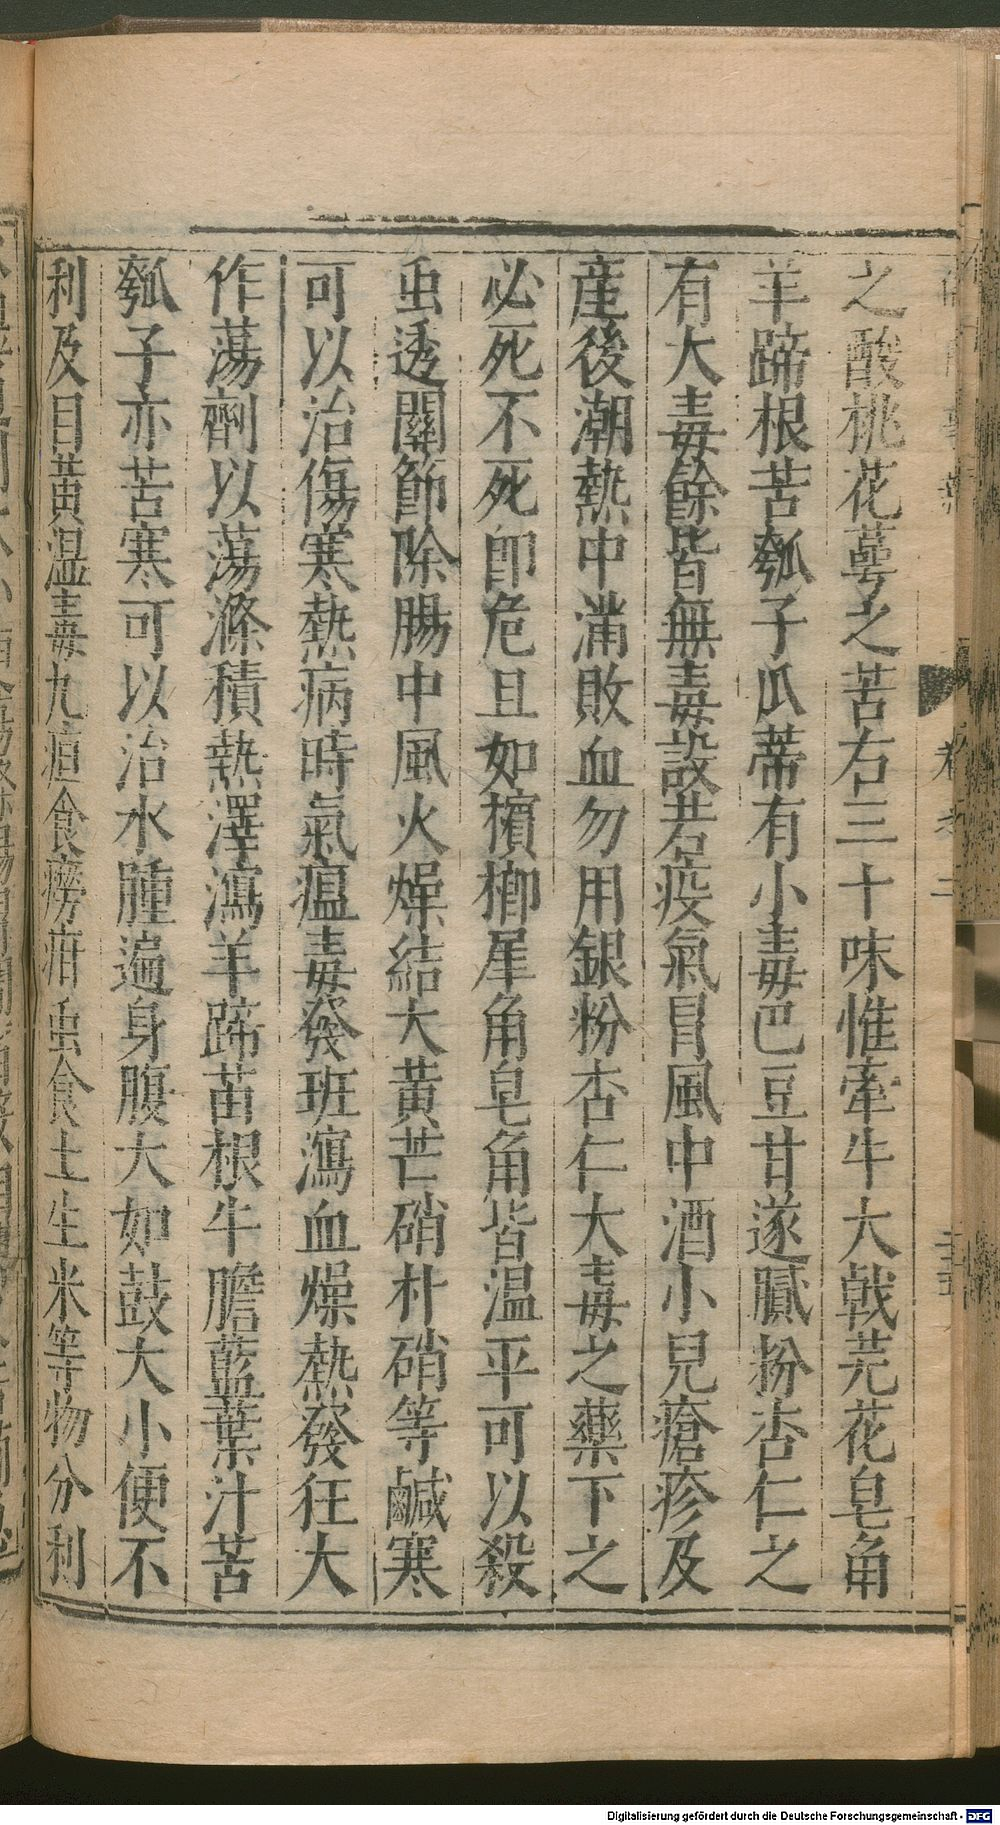 之酸桃花蕚之苦右三十味惟牽牛大戟芫花皂角
羊蹄根苦瓠子瓜蒂有小毒巴豆甘遂膩粉杏仁之
有大毒餘皆無毒設若疫氣冒風中酒小兒瘡疹及
産後潮熱中滿敗血勿用銀粉杏仁大毒之藥下之
必死不死卽危且如檳榔犀角皂角皆温平可以殺
虫透關節除腸中風火燥結大黃芒硝朴硝等鹹寒
可以治傷寒熱病時氣瘟毒發班瀉血燥熱發狂大
作蕩劑以蕩滌積熱澤瀉羊蹄苗根牛膽藍葉汁苦
瓠子亦苦寒可以治水腫遍身腹大如鼓大小便不
利及目黃温毒九疸食癆疳虫食土生米等物分利
Digitalisierung gefördert durch die Deutsche Forschungsgemeinschaft - DFG